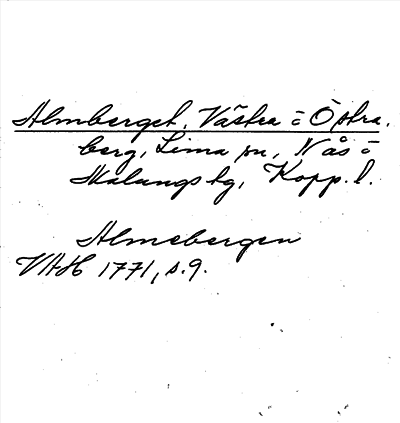 Almberget, Västra o Östra,
berg, Lima sn, Nås o
Malungs tg, Kopp. l.
Almebergen
VAH 1771, s. 9.